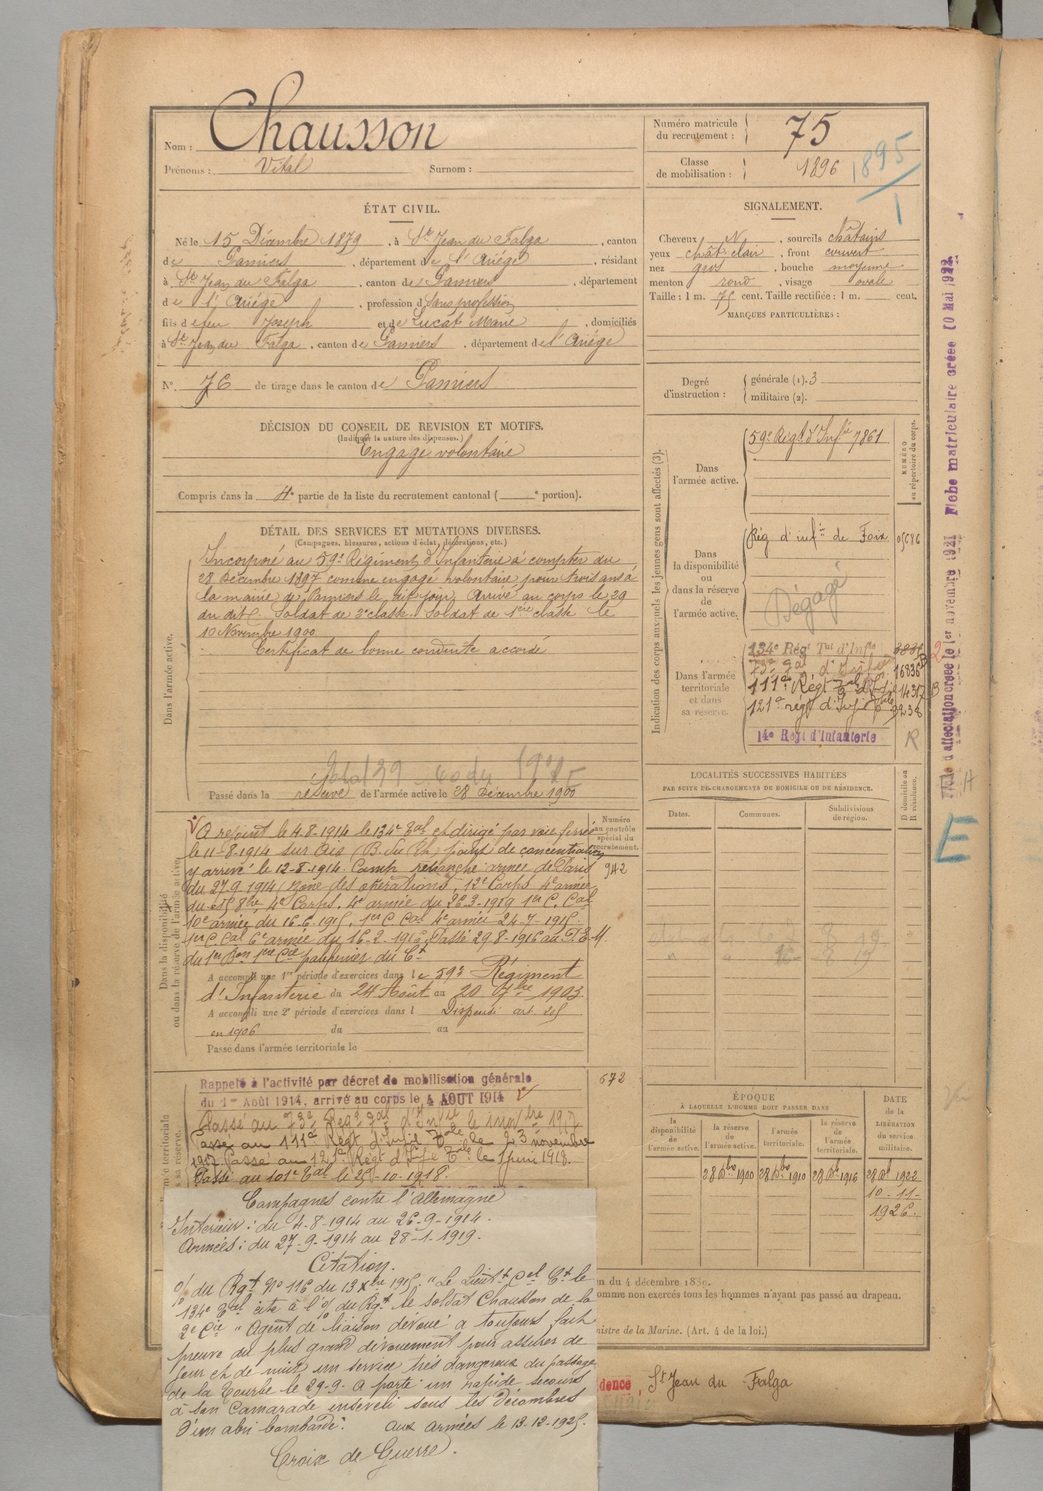 Nom : Chausson
Prénoms : Vital Surnom :
Numéro matricule du recrutement : 75
Classe de mobilisation : 1896
1895
1
ÉTAT CIVIL.
Né le 15 Décembre 1879, à St Jean du Falga, canton
de Pamiers, département de l'Ariège, résidant
à St Jean du Falga, canton de Pamiers, département
de l'Ariège, profession d Sans profession
fils de feu Joseph et de Lucat Marie, domiciliés
à St Jean du Falga, canton de Pamiers, département de l'Ariège
N° 76 de tirage dans le canton de Pamiers
SIGNALEMENT.
Cheveux N, sourcils châtains
yeux chât. clair, front couvert
nez gros, bouche moyenne
menton rond, visage ovale
Taille : 1 m. 75 cent. Taille rectifiée : 1 m. cent.
MARQUES PARTICULIÈRES :
Degré d'instruction : générale (1). 3
militaire (2).
DÉCISION DU CONSEIL DE REVISION ET MOTIFS.
(Indiquer la nature des dispenses.)
Engagé volontaire
Compris dans la 4e partie de la liste du recrutement cantonal ( e portion).
DÉTAIL DES SERVICES ET MUTATIONS DIVERSES.
(Campagnes, blessures, actions d'éclat, décorations, etc.)
Dans l'armée active.
Incorporé au 59e Régiment d'Infanterie à compter du
28 décembre 1897 comme engagé volontaire pour trois ans à
la mairie de Pamiers le dit jour. Arrivé au corps le 29
du dit. Soldat de 2e classe. Soldat de 1ère classe le
10 Novembre 1900
Certificat de bonne conduite accordé
Passé dans la réserve de l'armée active le 28 Décembre 1900
Indication des corps auxquels les jeunes gens sont affectés (3).
NUMÉRO au répertoire du corps.
Dans l'armée active.
59e Régt d'Infie 7861
Dans la disponibilité ou dans la réserve de l'armée active.
Rég d'infie de Foix 05686
Dégagé
Dans l'armée territoriale et dans sa réserve.
134e Régt Tal d'Infie
16836
111e Régt Tal d'Infie 14317
121e régt d'Infie Tale 9238
14e Régt d'Infanterie R
Fiche d'affectation créée le 1er novembre 1921 Fiche matriculaire créée 10 Mai 1922
E
Dans la disponibilité ou dans la réserve de l'armée active.
Numéro au contrôle spécial du recrutement.
942
A rejoint le 4-8-1914 le 134e Tal et dirigé par voie ferrée
le 11-8-1914 sur Aix (B. du Rh) point de concentration
y arrivé le 12-8-1914. Camp retranché armée de Paris
du 27 9 1914 (zone des opérations), 12e Corps 4e armée
4e Corps. 4e armée du 26.3-1919 1er C. Cal
10e armée du 16.6.1915. 1er C Cal 4e armée 24-7-1915
1er C Cal 6e armée du 16-2-1916 Passé 29 8-1916 au
du 1er Bon 1ère Cie
A accompli une 1re période d'exercices dans le 59e Régiment
d'Infanterie du 24 Août au 20 7bre 1903
A accompli une 2e période d'exercices dans l Dispensé
en 1906 du au
Passé dans l'armée territoriale le
LOCALITÉS SUCCESSIVES HABITÉES
PAR SUITE DE CHANGEMENTS DE DOMICILE OU DE RÉSIDENCE.
Dates. Communes. Subdivisions de région. D domicile ou R résidence.
Rappelé à l'activité par décret de mobilisation générale
du 1er Août 1914, arrivé au corps le 4 AOUT 1914
672
Passé au 111e Régt d'Infie Tale le 23 novembre
1917 Passé au 121e Régt d'Infie Tale le 1 juin 1918.
Passé au 101e Tal le 25-10-1918.
ÉPOQUE
À LAQUELLE L'HOMME DOIT PASSER DANS
la disponibilité de l'armée active. la réserve de l'armée active. l'armée territoriale. la réserve de l'armée territoriale.
DATE de la LIBÉRATION du service militaire.
28 Dbre 1900 28 Dbre 1910 28 Dc 1916 28 Dc 1922
10-11-
1926.
Campagnes contre l'Allemagne
Intérieur : du 4-8-1914 au 26-9-1914.
Armées : du 27-9-1914 au 28-1-1919.
Citation.
O/ du Rgt No 116 du 13 Xbre 1915. "Le Lieutt Cel Ct le
134e Tal cite à l'O/ du Rgt le soldat Chausson de la
2e Cie "Agent de liaison dévoué a toujours fait
preuve du plus grand dévouement pour assurer de
jour et de nuit un service très dangereux du passage
de la Tourbe le 29-9. a porté un rapide secours
à son camarade enseveli sous les décombres
d'un abri bombardé." aux armées le 13-12-1915.
Croix de Guerre.
n du 4 décembre 1889.
omme non exercés tous les hommes n'ayant pas passé au drapeau.
nistre de la Marine. (Art. 4 de la loi.)
dence, St Jean du Falga